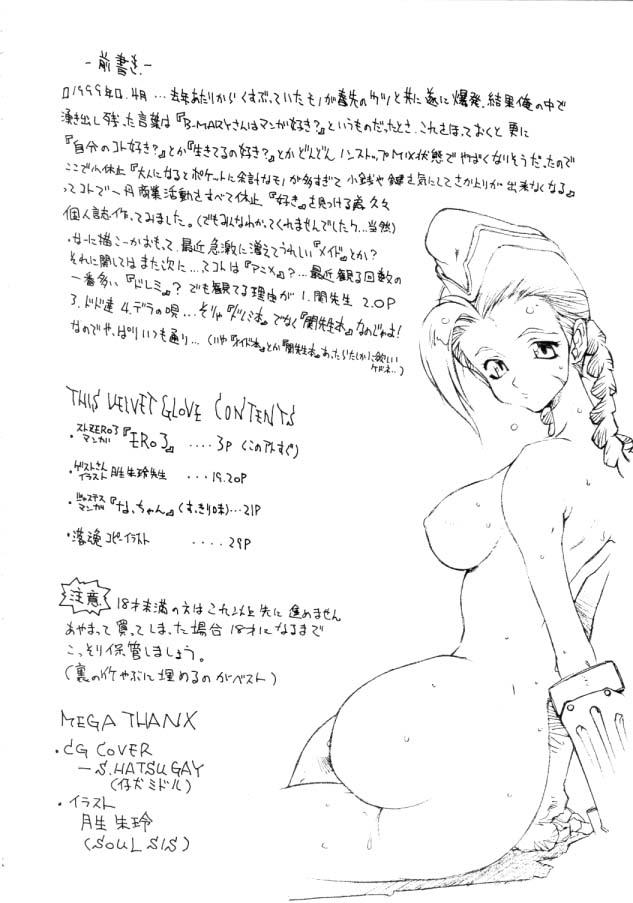 -前書き-
□1999年□.4月 …去年あたりからくすぶっていたモノが春先のケツと共に遂に爆発.結果俺の中で
湧き出し残った言葉は『B-MARYさんはマンガ好き?』というものだったとき.これをほっておくと更に
『自分のコト好き?』とか『生きてるの好き?』とかどんどんノンストップMIX状態でやばくなりそうだったので
ここで小休止『大人になるとポケットに余計なモノが多すぎて 小銭や鍵を気にしてさか上がりが出来なくなる』
ってコトで一丹商業活動をすべて休止『好き』を見つける為久々
個人誌作ってみました。(でもみんなわかってくれませんでしたケド…当然)
・なーに描こーかおもって.最近急激に増えてうれしい『メイド』とか?
それに関してはまた次に…ってコトは『アニメ』?…最近観る回数の
一番多い『ドレミ』? でも観てる理由が 1.関先生 2.OP
3.ドド達 4.デラの唄…そりゃ『ドレミ本』でなく『関先生本』なのじゃよ!
なのでやっぱりいつも通り…(いや『メイド本』とか『関先生本』あったらたしかに欲しい
ケドネ…)
THIS VELVET GLOVE CONTENTS
・ストZERO3マンガ『ERO3』 ....3P (このアトすぐ)
・ゲストさんイラスト 月生朱玲先生 ...19.20P
・ジャスティスマンガ『なっちゃん』(すっきり味)...21P
・落魂コピーイラスト ....29P
注意 18才未満の方はこれ以上先に進めません
あやまって買ってしまった場合 18才になるまで
こっそり保管しましょう。
(裏のイケやぶに埋めるのがベスト)
MEGA THANX
・CG COVER
―S.HATSUGAY
(仔犬ミドル)
・イラスト
月生 朱玲
(SOUL SIS)